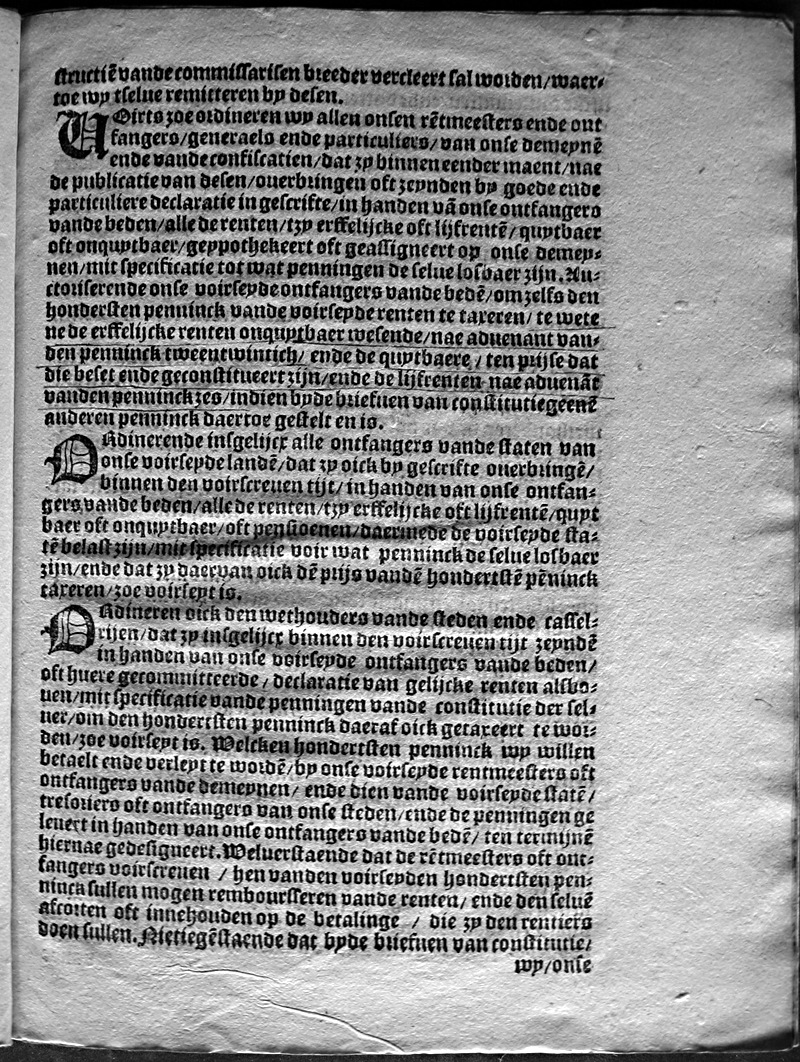 structiē vande commissarisen breeder vercleert sal worden/waer⸗
toe wy tselue remitteren by desen.
VOirts zoe ordineren wy allen onsen rētmeesters ende ont
fangers/generaels ende particuliers/van onse demeynē
ende vande confiscatien/dat zy binnen eender maent/nae
de publicatie van desen/ouerbringen oft zeynden by goede ende
particuliere declaratie in gescrifte/in handen vā onse ontfangers
vande beden/alle de renten/tzy erffelijcke oft lijfrentē/quytbaer
oft onquytbaer/geypothekeert oft geassigneert op onse demey⸗
nen/mit specificatie tot wat penningen de selue losbaer zijn. Au⸗
ctoriserende onse voirseyde ontfangers vande bedē/om zelfs den
hondersten penninck vande voirseyde renten te taxeren/te wete
ne de erffelijcke renten onquytbaer wesende/nae aduenant van⸗
den penninck tweentwintich/ ende de quytbaere/ ten prijse dat
die beset ende geconstitueert zijn/ende de lijfrenten nae aduenāt
vanden penninck zes/indien byde briefuen van constitutie geenē
anderen penninck daertoe gestelt en is.
ORdinerende insgelijcx alle ontfangers vande staten van
onse voirseyde landē/dat zy oick by gescrifte ouerbringē/
binnen den voirscreuen tijt/in handen van onse ontfan⸗
gers vande beden/alle de renten/tzy erffelijcke oft lijfrentē/quyt
baer oft onquytbaer/oft pensioenen/daermede de voirseyde sta⸗
tē belast zijn/mit specificatie voir wat penninck de selue losbaer
zijn/ende dat zy daervan oick dē prijs vandē hondertstē pēninck
taxeren/zoe voirseyt is.
ORdineren oick den wethouders vande steden ende cassel⸗
rijen/dat zy insgelijcx binnen den voirscreuen tijt zeyndē
in handen van onse voirseyde ontfangers vande beden/
oft huere gecommitteerde/ declaratie van gelijcke renten alsbo⸗
uen/mit specificatie vande penningen vande constitutie der sel⸗
uer/om den hondertsten penninck daeraf oick getaxeert te wor⸗
den/zoe voirseyt is. Welcken hondertsten penninck wy willen
betaelt ende verleyt te wordē/by onse voirseyde rentmeesters oft
ontfangers vande demeynen/ ende dien vande voirseyde statē/
tresoriers oft ontfangers van onse steden/ende de penningen ge
leuert in handen van onse ontfangers vande bedē/ ten termijnē
hiernae gedesigneert. Weluerstaende dat de rētmeesters oft ont⸗
fangers voirscreuen / hen vanden voirseyden hondertsten pen⸗
ninck sullen mogen rembourseren vande renten/ ende den seluē
afcorten oft innehouden op de betalinge / die zy den rentiers
doen sullen. Nietiegēstaende dat byde briefuen van constitutie/
wy/onse